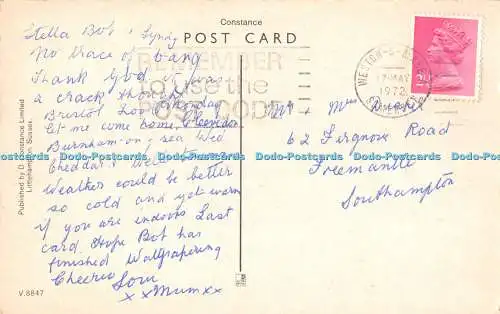 Constance
POST CARD
Stella Bob & Lyndy
No trace of bang
Thank God it was
a crack though
Bristol Zoo Monday
let me come home, Clevedon
Burnham-on-sea Wed
Cheddar & Weston
Weather could be better
so cold and yet warm
if you are indoors Last
card Hope Bob has
finished Wallpapering
Cheerio Love
x x Mum x x
REMEMBER
to use the
POST CODE
WESTON-S-MARE
17 MAY
1972
SOMERSET
Mr & Mrs
62 Firgrove Road
Freemantle
Southampton
Published by D. Constance Limited
Littlehampton, Sussex.
V.8847
Postcards - Dodo-Postcards - Dodo-Postcards - Dodo-Postcards - Dodo-Postcards